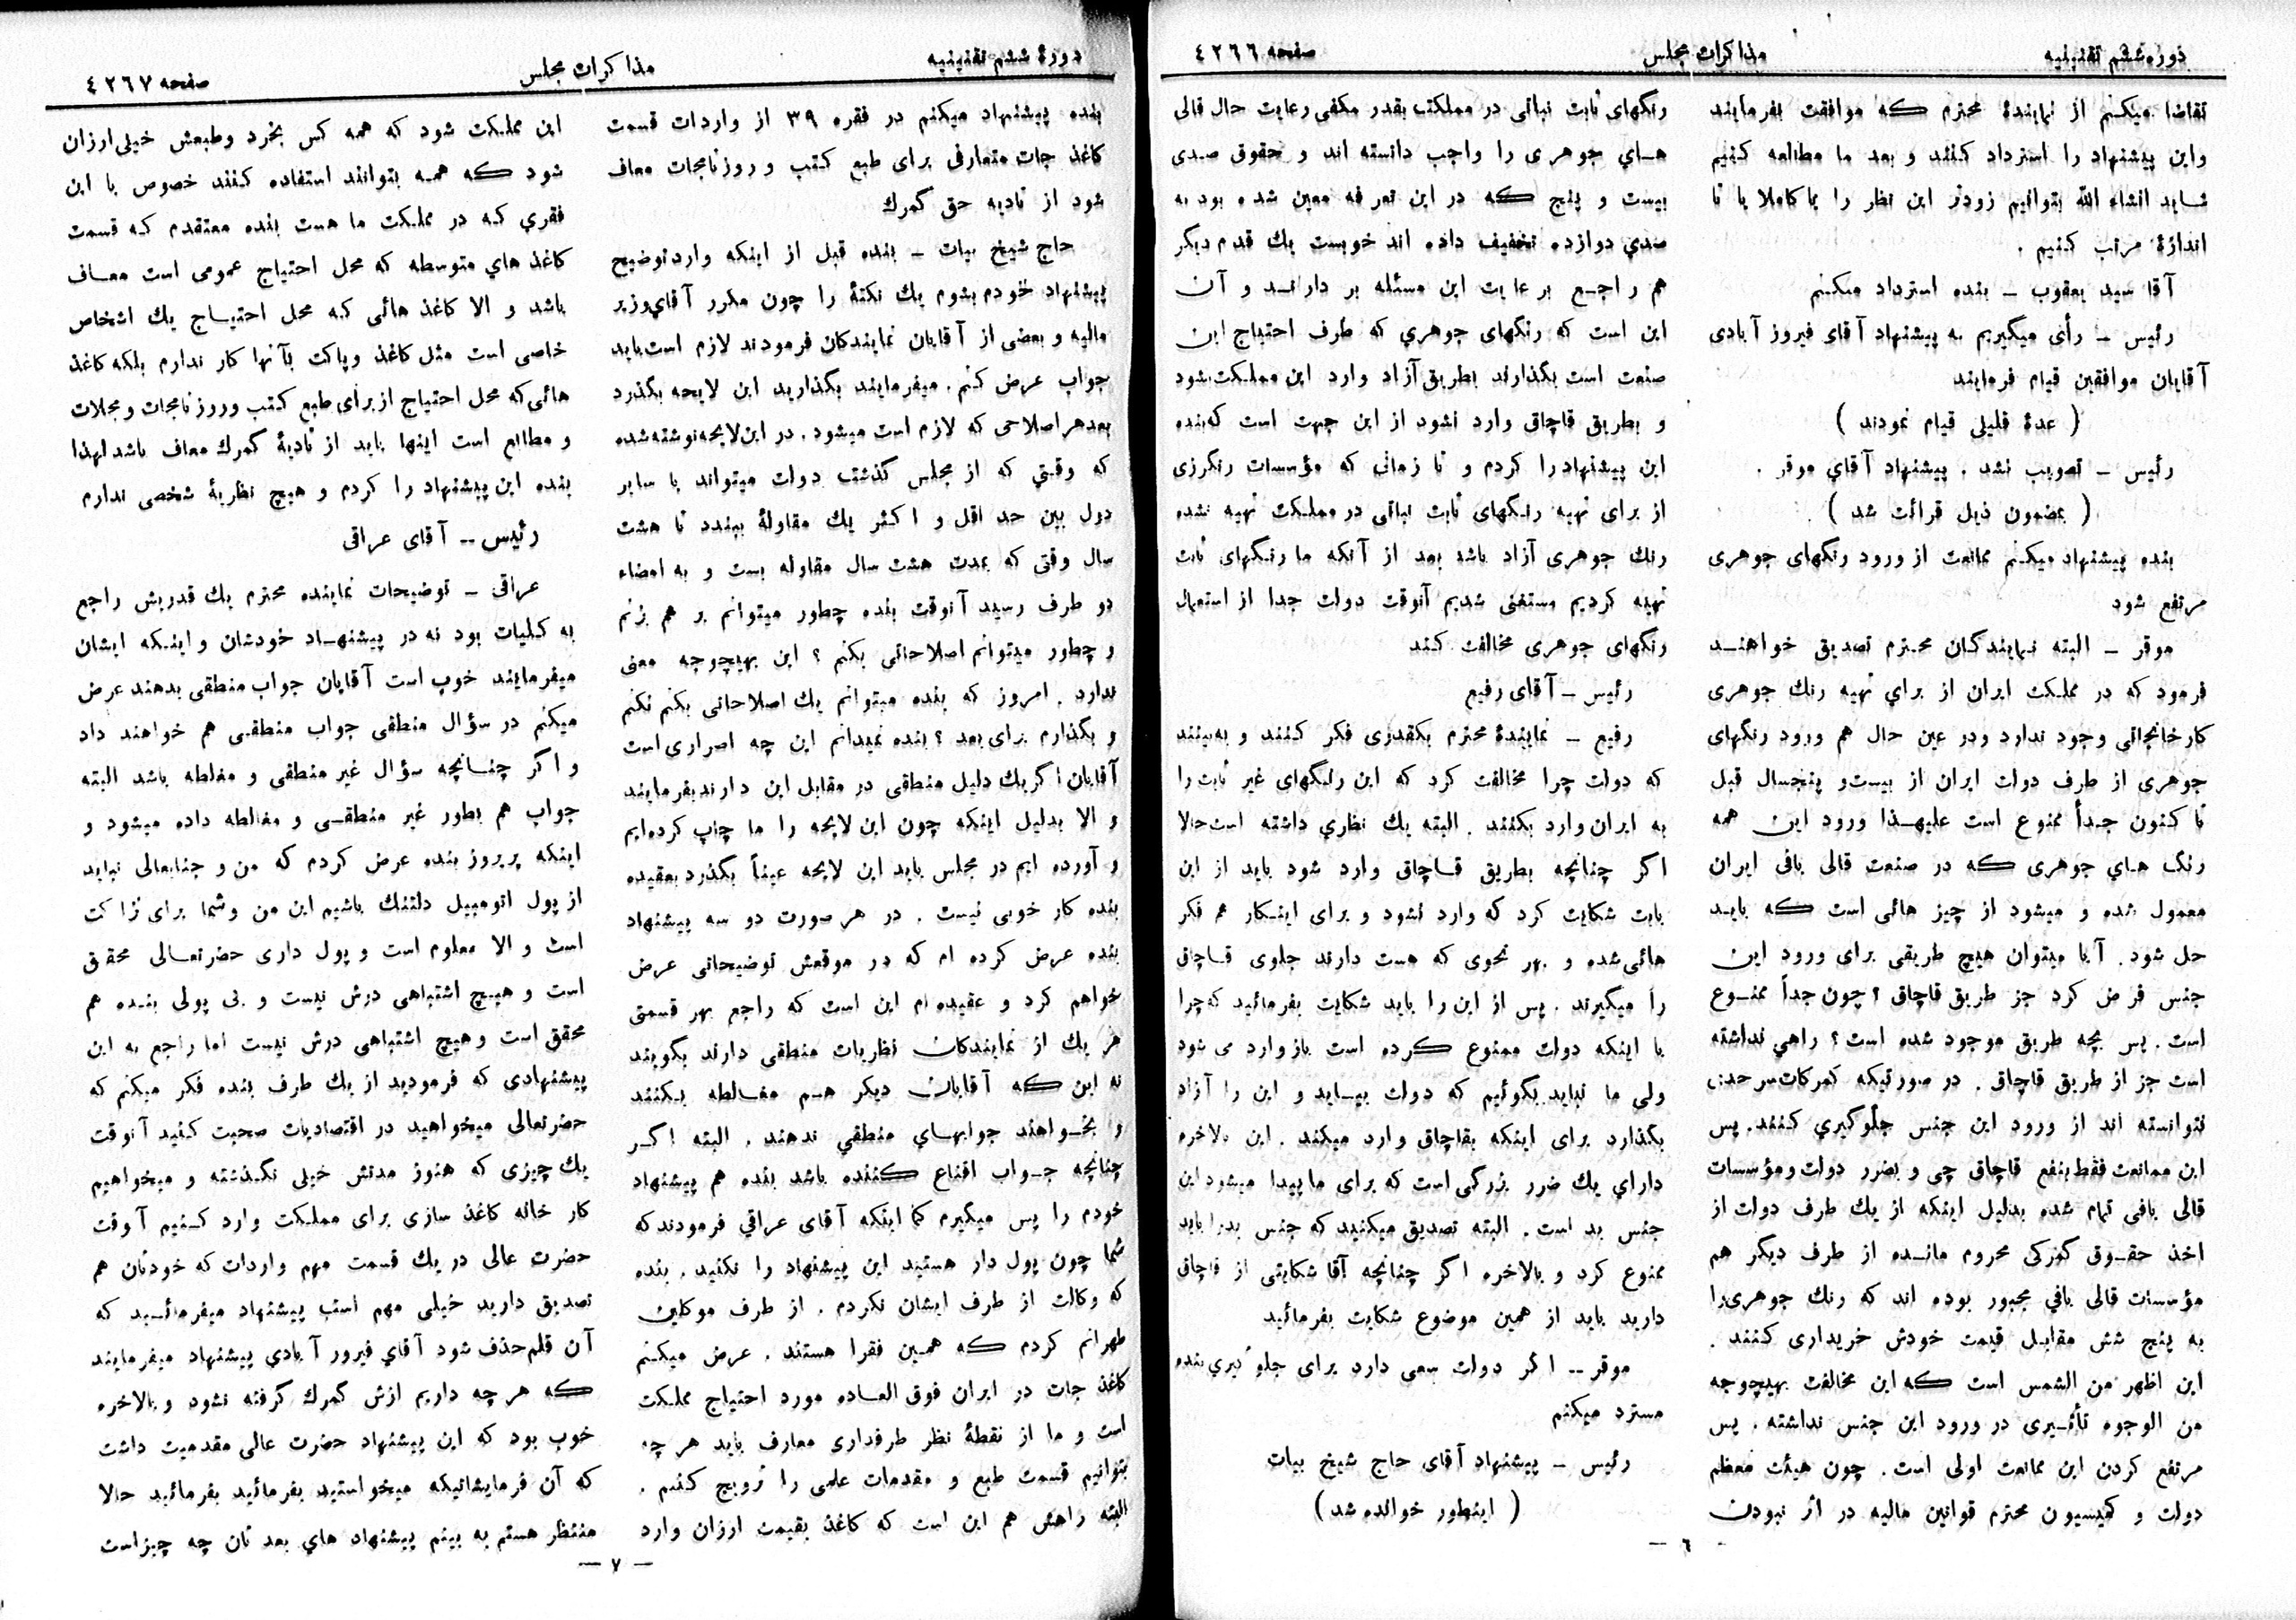 دورهٔ ششم تقنینیه
مذاکرات مجلس
صفحه ٤٢٦٦
تقاضا میکنم از نمایندهٔ محترم که موافقت بفرمایند
واین پیشنهاد را استرداد کنند و بعد ما مطالعه کنیم
شاید انشاء الله بتوانیم زودتر این نظر را یا کاملا یا تا
اندازهٔ مرتب کنیم .
آقا سید یعقوب ـ بنده استرداد میکنم
رئیس ـ رأی میگیریم به پیشنهاد آقای فیروز آبادی
آقایان موافقین قیام فرمایند
( عدهٔ قلیلی قیام نمودند )
رئیس ـ تصویب نشد . پیشنهاد آقاي موقر .
( بمضمون ذیل قرائت شد )
بنده پیشنهاد میکنم ممانعت از ورود رنگهای جوهری
مرتفع شود
موقر ـ البته نمایندگان محترم تصدیق خواهند
فرمود که در مملکت ایران از براي تهیه رنك جوهری
کارخانجاتی وجود ندارد ودر عین حال هم ورود رنگهای
جوهری از طرف دولت ایران از بیست و پنجسال قبل
تا کنون جداً ممنوع است علیهذا ورود این همه
رنگ هاي جوهری که در صنعت قالی بافی ایران
معمول شده و میشود از چیز هائی است که باید
حل شود . آیا میتوان هیچ طریقی برای ورود این
جنس فرض کرد جز طریق قاچاق ؟ چون جداً ممنوع
است . پس بچه طریق موجود شده است ؟ راهی نداشته
است جز از طریق قاچاق . در صورتیکه گمرکات سرحدی
نتوانسته اند از ورود این جنس جلوگیري کنند . پس
این ممانعت فقط بنفع قاچاق چی و بضرر دولت ومؤسسات
قالی بافی تمام شده بدلیل اینکه از یك طرف دولت از
اخذ حقوق گمرکی محروم مانده از طرف دیگر هم
مؤسسات قالی بافي مجبور بوده اند که رنك جوهری را
به پنج شش مقابل قیمت خودش خریداری کنند .
این اظهر من الشمس است که این مخالفت بهیچوجه
من الوجوه تأثیری در ورود این جنس نداشته . پس
مرتفع کردن این ممانعت اولی است . چون هیئت معظم
دولت و کمیسیون محترم قوانین مالیه در اثر نبودن
رنگهای ثابت نباتی در مملکت بقدر مکفی رعایت حال قالی
هاي جوهری را واجب دانسته اند و حقوق صدی
بیست و پنج که در این تعرفه معین شده بود به
صدي دوازده تخفیف داده اند خوبست یك قدم دیگر
هم راجع برعایت این مسئله بر دارند و آن
این است که رنگهای جوهري که طرف احتیاج این
صنعت است بگذارند بطریق آزاد وارد این مملکت شود
و بطریق قاچاق وارد نشود از این جهت است که بنده
این پیشنهاد را کردم و تا زمانی که مؤسسات رنگرزی
از برای تهیه رنگهای ثابت نباتی در مملکت تهیه نشده
رنك جوهری آزاد باشد بعد از آنکه ما رنگهای ثابت
تهیه کردیم مستغنی شدیم آنوقت دولت جدا از استعمال
رنگهای جوهری مخالفت کند
رئیس ـ آقای رفیع
رفیع ـ نمایندهٔ محترم بکقدری فکر کنند و به‌بینند
که دولت چرا مخالفت کرد که این رنگهای غیر ثابت را
به ایران وارد بکنند . البته یك نظري داشته است حالا
اگر چنانچه بطریق قاچاق وارد شود باید از این
بابت شکایت کرد که وارد نشود و برای اینکار هم فکر
هائی شده و بهر نحوی که هست دارند جلوی قاچاق
را میگیرند . پس از این را باید شکایت بفرمائید که چرا
با اینکه دولت ممنوع کرده است باز وارد می شود
ولی ما نباید بگوئیم که دولت بیاید و این را آزاد
بگذارد برای اینکه بقاچاق وارد میکند . این بالاخره
داراي یك ضرر بزرگی است که برای ما پیدا میشود این
جنس بد است . البته تصدیق میکنید که جنس بدرا باید
ممنوع کرد و بالاخره اگر چنانچه آقا شکایتی از قاچاق
دارید باید از همین موضوع شکایت بفرمائید
موقر -- اگر دولت سعی دارد برای جلوگیري بنده
مسترد میکنم
رئیس ـ پیشنهاد آقای حاج شیخ بیات
( اینطور خوانده شد )
ـ ٦ ـ
دورهٔ ششم تقنینیه
مذاکرات مجلس
صفحه ٤٢٦٧
بنده پیشنهاد میکنم در فقره ٣٩ از واردات قسمت
کاغذ جات متعارفی برای طبع کتب و روزنامجات معاف
شود از تادیه حق گمرك
حاج شیخ بیات ـ بنده قبل از اینکه وارد توضیح
پیشنهاد خودم بشوم یك نکتهٔ را چون مکرر آقاي وزیر
مالیه و بعضی از آقایان نمایندکان فرمودند لازم است باید
جواب عرض کنم . میفرمایند بگذارید این لایحه بگذرد
بعد هر اصلاحی که لازم است میشود . در این لایحه نوشته شده
که وقتي که از مجلس گذشت دولت میتواند با سایر
دول بین حد اقل و اکثر یك مقاولهٔ ببندد تا هشت
سال وقتی که بمدت هشت سال مقاوله بست و به امضاء
دو طرف رسید آنوقت بنده چطور میتوانم بر هم بزنم
و چطور میتوانم اصلاحاتی بکنم ؟ این بهیچوجه معنی
ندارد . امروز که بنده میتوانم یك اصلاحاتی بکنم نکنم
و بگذارم برای بعد ؟ بنده نمیدانم این چه اصراری است
آقایان اگر یك دلیل منطقی در مقابل این دارند بفرمایند
و الا بدلیل اینکه چون این لایحه را ما چاپ کرده‌ایم
و آورده ایم در مجلس باید این لایحه عیناً بگذرد بعقیده
بنده کار خوبی نیست . در هر صورت دو سه پیشنهاد
بنده عرض کرده ام که در موقعش توضیحاتی عرض
خواهم کرد و عقیده‌ام این است که راجع بهر قسمتی
هر یك از نمایندکان نظریات منطقی دارند بگویند
نه این که آقایان دیگر هم مغالطه بکنند
و بخواهند جوابهاي منطقي ندهند . البته اگر
چنانچه جواب اقناع کننده باشد بنده هم پیشنهاد
خودم را پس میگیرم کما اینکه آقای عراقي فرمودند که
شما چون پول دار هستید این پیشنهاد را نکنید . بنده
که وکالت از طرف ایشان نکردم . از طرف موکلین
طهرانم کردم که همین فقرا هستند . عرض میکنم
کاغذ جات در ایران فوق العاده مورد احتیاج مملکت
است و ما از نقطهٔ نظر طرفداری معارف باید هر چه
بتوانیم قسمت طبع و مقدمات علمی را ترویج کنیم .
البته راهش هم این است که کاغذ بقیمت ارزان وارد
این مملکت شود که همه کس بخرد وطبعش خیلی ارزان
شود که همه بتوانند استفاده کنند خصوص با این
فقري که در مملکت ما هست بنده معتقدم که قسمت
کاغذ هاي متوسطه که محل احتیاج عمومی است معاف
باشد و الا کاغذ هائی که محل احتیاج یك اشخاص
خاصی است مثل کاغذ و پاکت بآنها کار ندارم بلکه کاغذ
هائی که محل احتیاج از برای طبع کتب و روزنامجات و مجلات
و مطابع است اینها باید از تادیهٔ گمرك معاف باشد لهذا
بنده این پیشنهاد را کردم و هیچ نظریهٔ شخصی ندارم
رئیس -- آقای عراقی
عراقی ـ توضیحات نماینده محترم یك قدریش راجع
به کلیات بود نه در پیشنهاد خودشان و اینکه ایشان
میفرمایند خوب است آقایان جواب منطقی بدهند عرض
میکنم در سؤال منطقی جواب منطقی هم خواهند داد
و اگر چنانچه سؤال غیر منطقی و مغلطه باشد البته
جواب هم بطور غیر منطقی و مغالطه داده میشود و
اینکه پریروز بنده عرض کردم که من و جنابعالی نباید
از پول اتومبیل دلتنك باشیم این من وشما برای نزاکت
است و الا معلوم است و پول داری حضرتعالی محقق
است و هیچ اشتباهی درش نیست و بی پولی بنده هم
محقق است وهیچ اشتباهی درش نیست اما راجع به این
پیشنهادی که فرمودید از یك طرف بنده فکر میکنم که
حضرتعالی میخواهید در اقتصادیات صحبت کنید آنوقت
یك چیزی که هنوز مدتش خیلی نگذشته و میخواهیم
کار خانه کاغذ سازی برای مملکت وارد کنیم آنوقت
حضرت عالی در یك قسمت مهم واردات که خودتان هم
تصدیق دارید خیلی مهم است پیشنهاد میفرمائید که
آن قلم حذف شود آقاي فیروز آبادي پیشنهاد میفرمایند
که هر چه داریم ازش گمرك گرفته نشود و بالاخره
خوب بود که این پیشنهاد حضرت عالی مقدمیت داشت
که آن فرمایشاتیکه میخواستید بفرمائید بفرمائید حالا
منتظر هستم به بینم پیشنهاد هاي بعد تان چه چیز است
ـ ٧ ـ